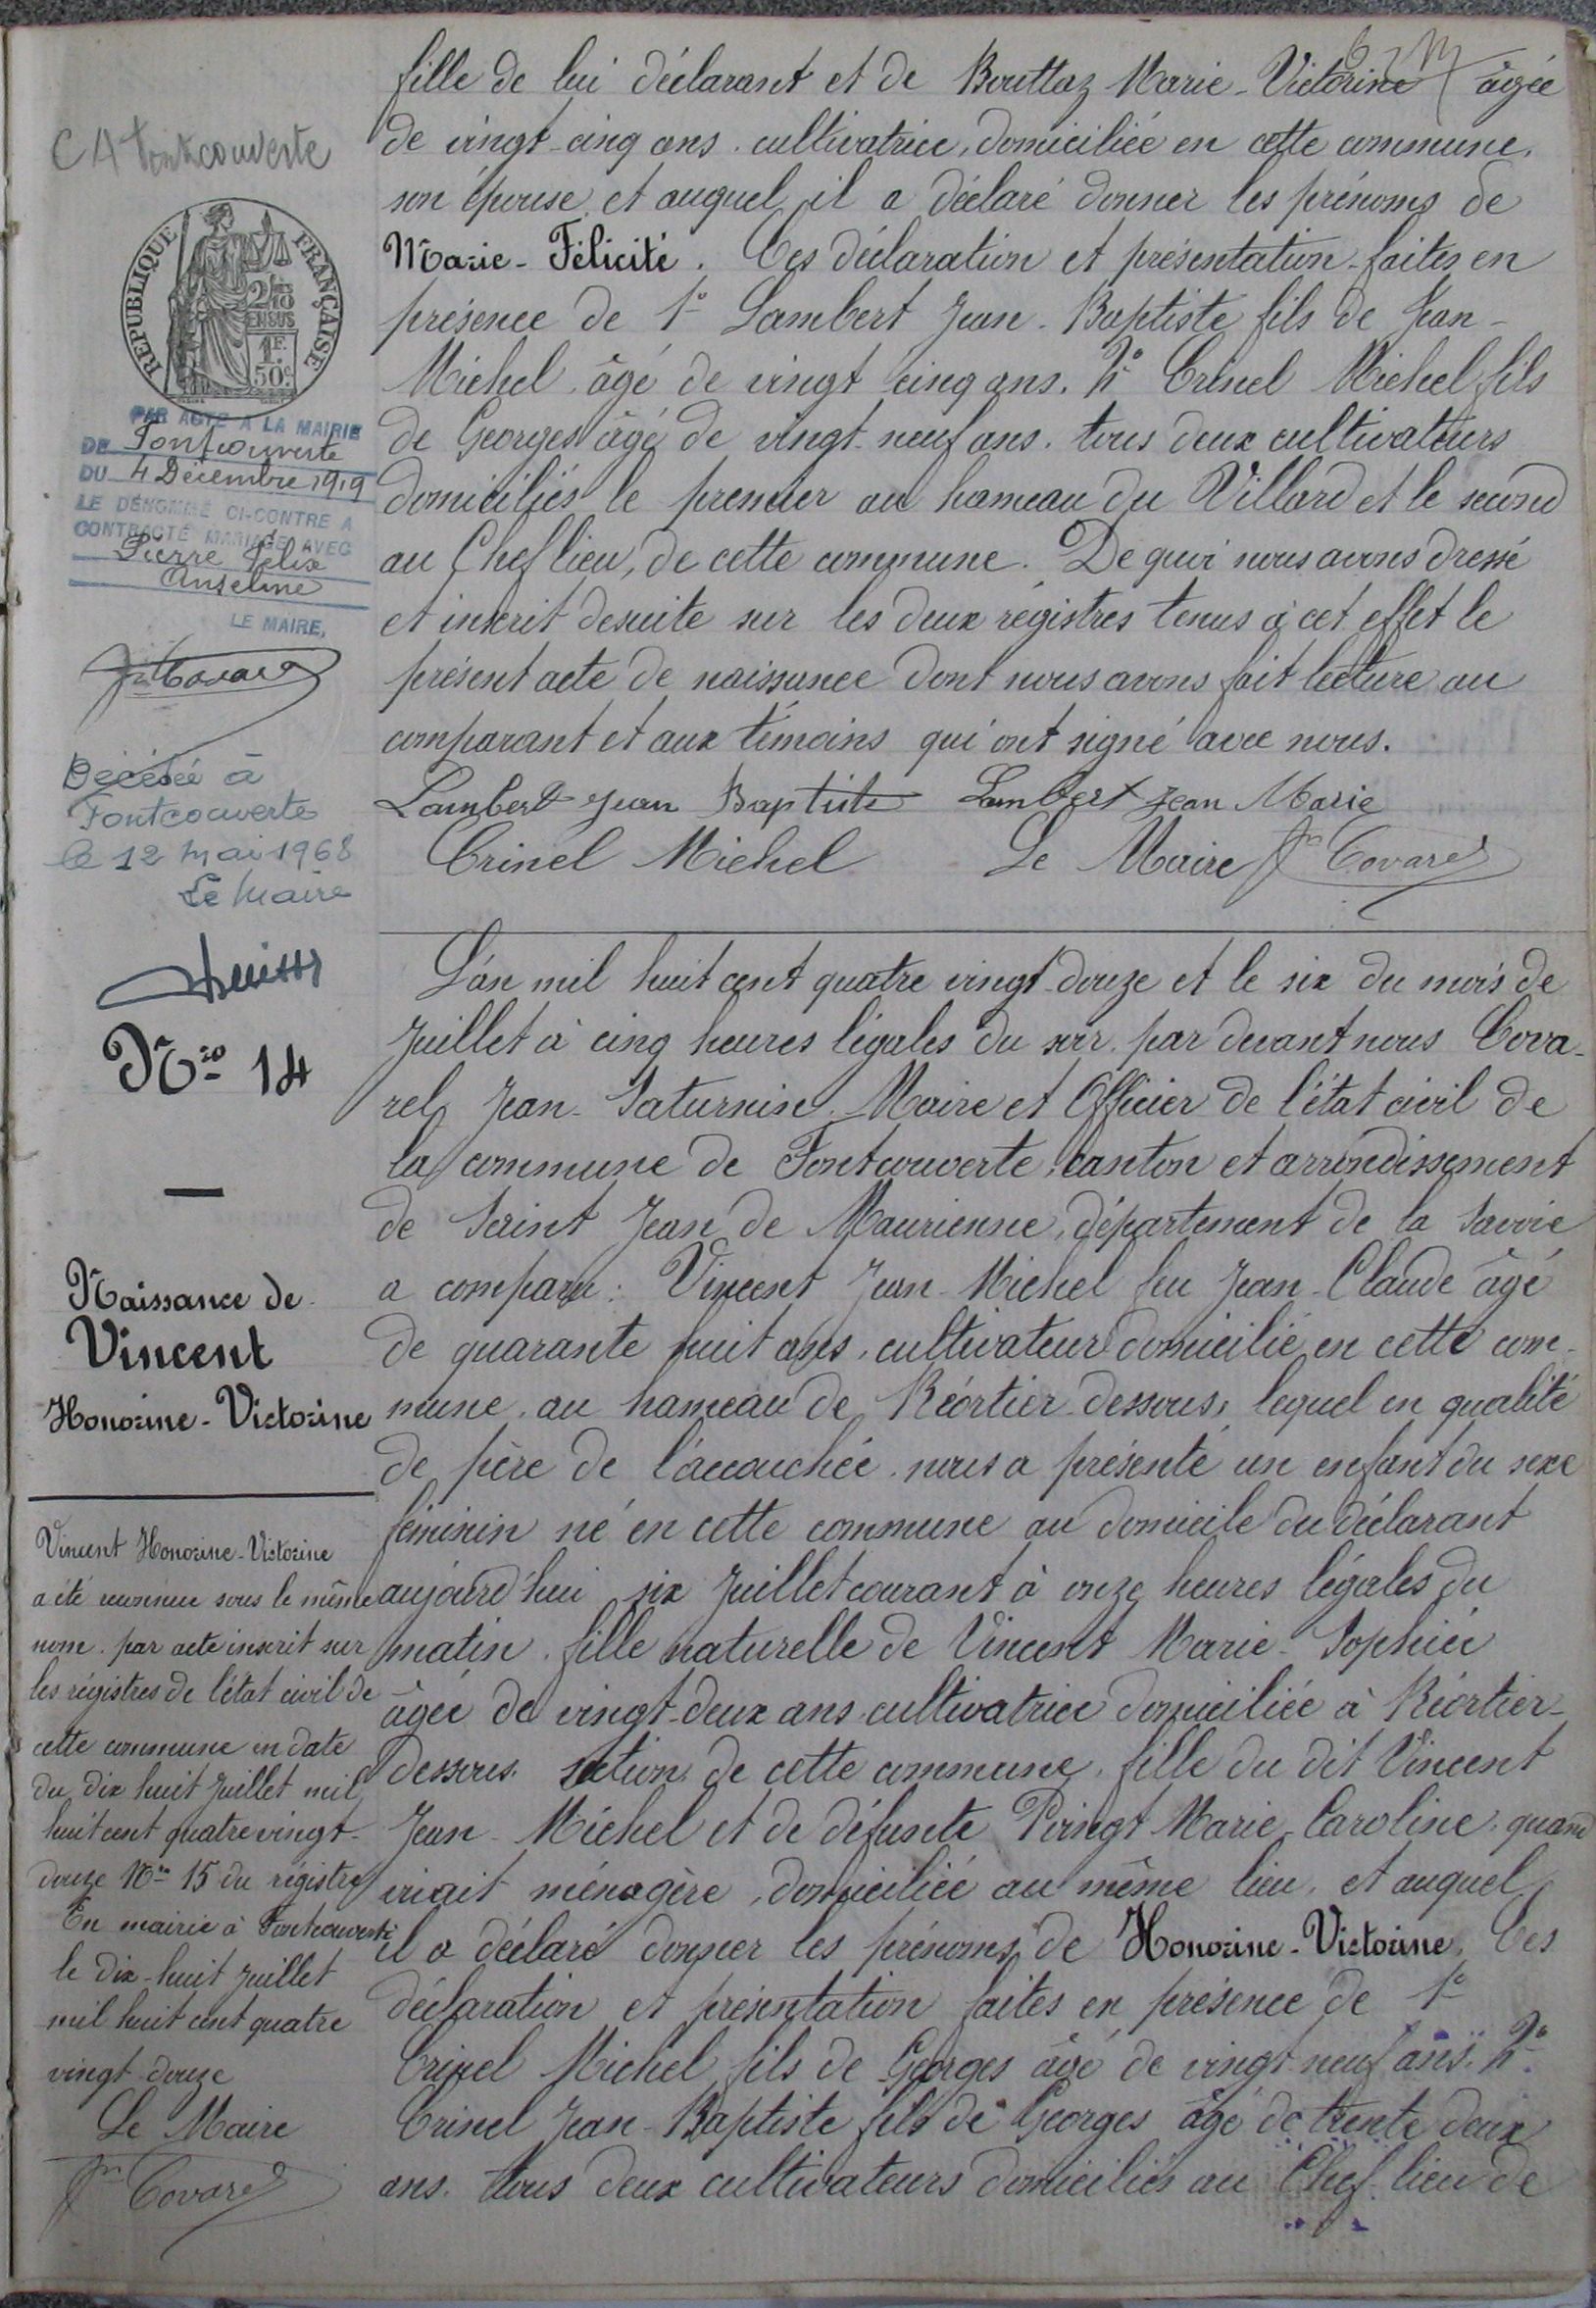 fille de lui déclarant et de Bouttaz Marie-Victorine âgée
de vingt-cinq ans. cultivatrice, domiciliée en cette commune.
son épouse, et auquel il a déclaré donner les prénoms de
Marie-Félicité. Ces déclaration et présentation faites en
présence de 1° Lambert Jean-Baptiste fils de Jean-
Michel âgé de vingt cinq ans. 2° Crinel Michel fils
de Georges âgé de vingt-neuf ans. tous deux cultivateurs
domiciliés le premier au hameau du Villard et le second
au Chef lieu, de cette commune. De quoi nous avons dressé
et inscrit desuite sur les deux régistres tenus à cet effet le
présent acte de naissance dont nous avons fait lecture au
comparant et aux témoins qui ont signé avec nous.
Lambert Jean Baptiste Lambert Jean Marie
Crinel Michel Le Maire Jn Covarel
C 4 Fontcouverte
REPUBLIQUE FRANÇAISE
2/10
EN SUS
1F.
50c.
PAR ACTE A LA MAIRIE
DE Fontcouverte
DU 4 Décembre 1919
LE DÉNOMMÉ CI-CONTRE A
CONTRACTÉ MARIAGE AVEC
Pierre Félix
Anselme
LE MAIRE,
Décédée à
Fontcouverte
le 12 mai 1968
Le Maire
Nro 14
Naissance de
Vincent
Honorine-Victorine
L'an mil huit cent quatre vingt-douze et le six du mois de
Juillet à cinq heures légales du soir. par devant nous Cova-
rel Jean-Saturnin. Maire et Officier de l'état civil de
la commune de Fontcouverte, canton et arrondissement
de Saint Jean de Maurienne, département de la Savoie
a comparu: Vincent Jean-Michel feu Jean-Claude âgé
de quarante huit ans, cultivateur domicilié en cette com-
mune. au hameau de Réortier-dessous, lequel en qualité
de père de l'accouchée. nous a présenté un enfant du sexe
féminin né en cette commune au domicile du déclarant
aujourd'hui six Juillet courant à onze heures légales du
matin. fille naturelle de Vincent Marie-Sophie
âgée de vingt-deux ans cultivatrice domiciliée à Réortier-
dessous. section de cette commune. fille du dit Vincent
Jean-Michel et de défunte Poingt Marie-Caroline. quand
vivait ménagère, domiciliée au même lieu. et auquel
il a déclaré donner les prénoms de Honorine-Victorine. Ces
déclaration et présentation faites en présence de 1°
Crinel Michel fils de Georges âgé de vingt-neuf ans. 2°
Crinel Jean-Baptiste fils de Georges âgé de trente deux
ans. tous deux cultivateurs domiciliés au Chef lieu de
Vincent Honorine-Victorine
a été reconnue sous le même
nom. par acte inscrit sur
les régistres de l'état civil de
cette commune en date
du dix huit Juillet mil
huit cent quatre vingt-
douze Nro 15 du régistre
En mairie à Fontcouverte
le dix-huit Juillet
mil huit cent quatre
vingt-douze
Le Maire
Jn Covarel